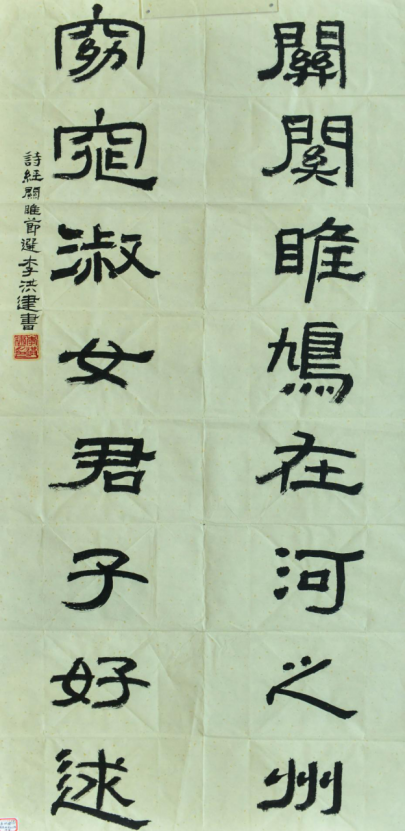 關關雎鳩在河之州
窈窕淑女君子好逑
詩經關雎節選李洪建書